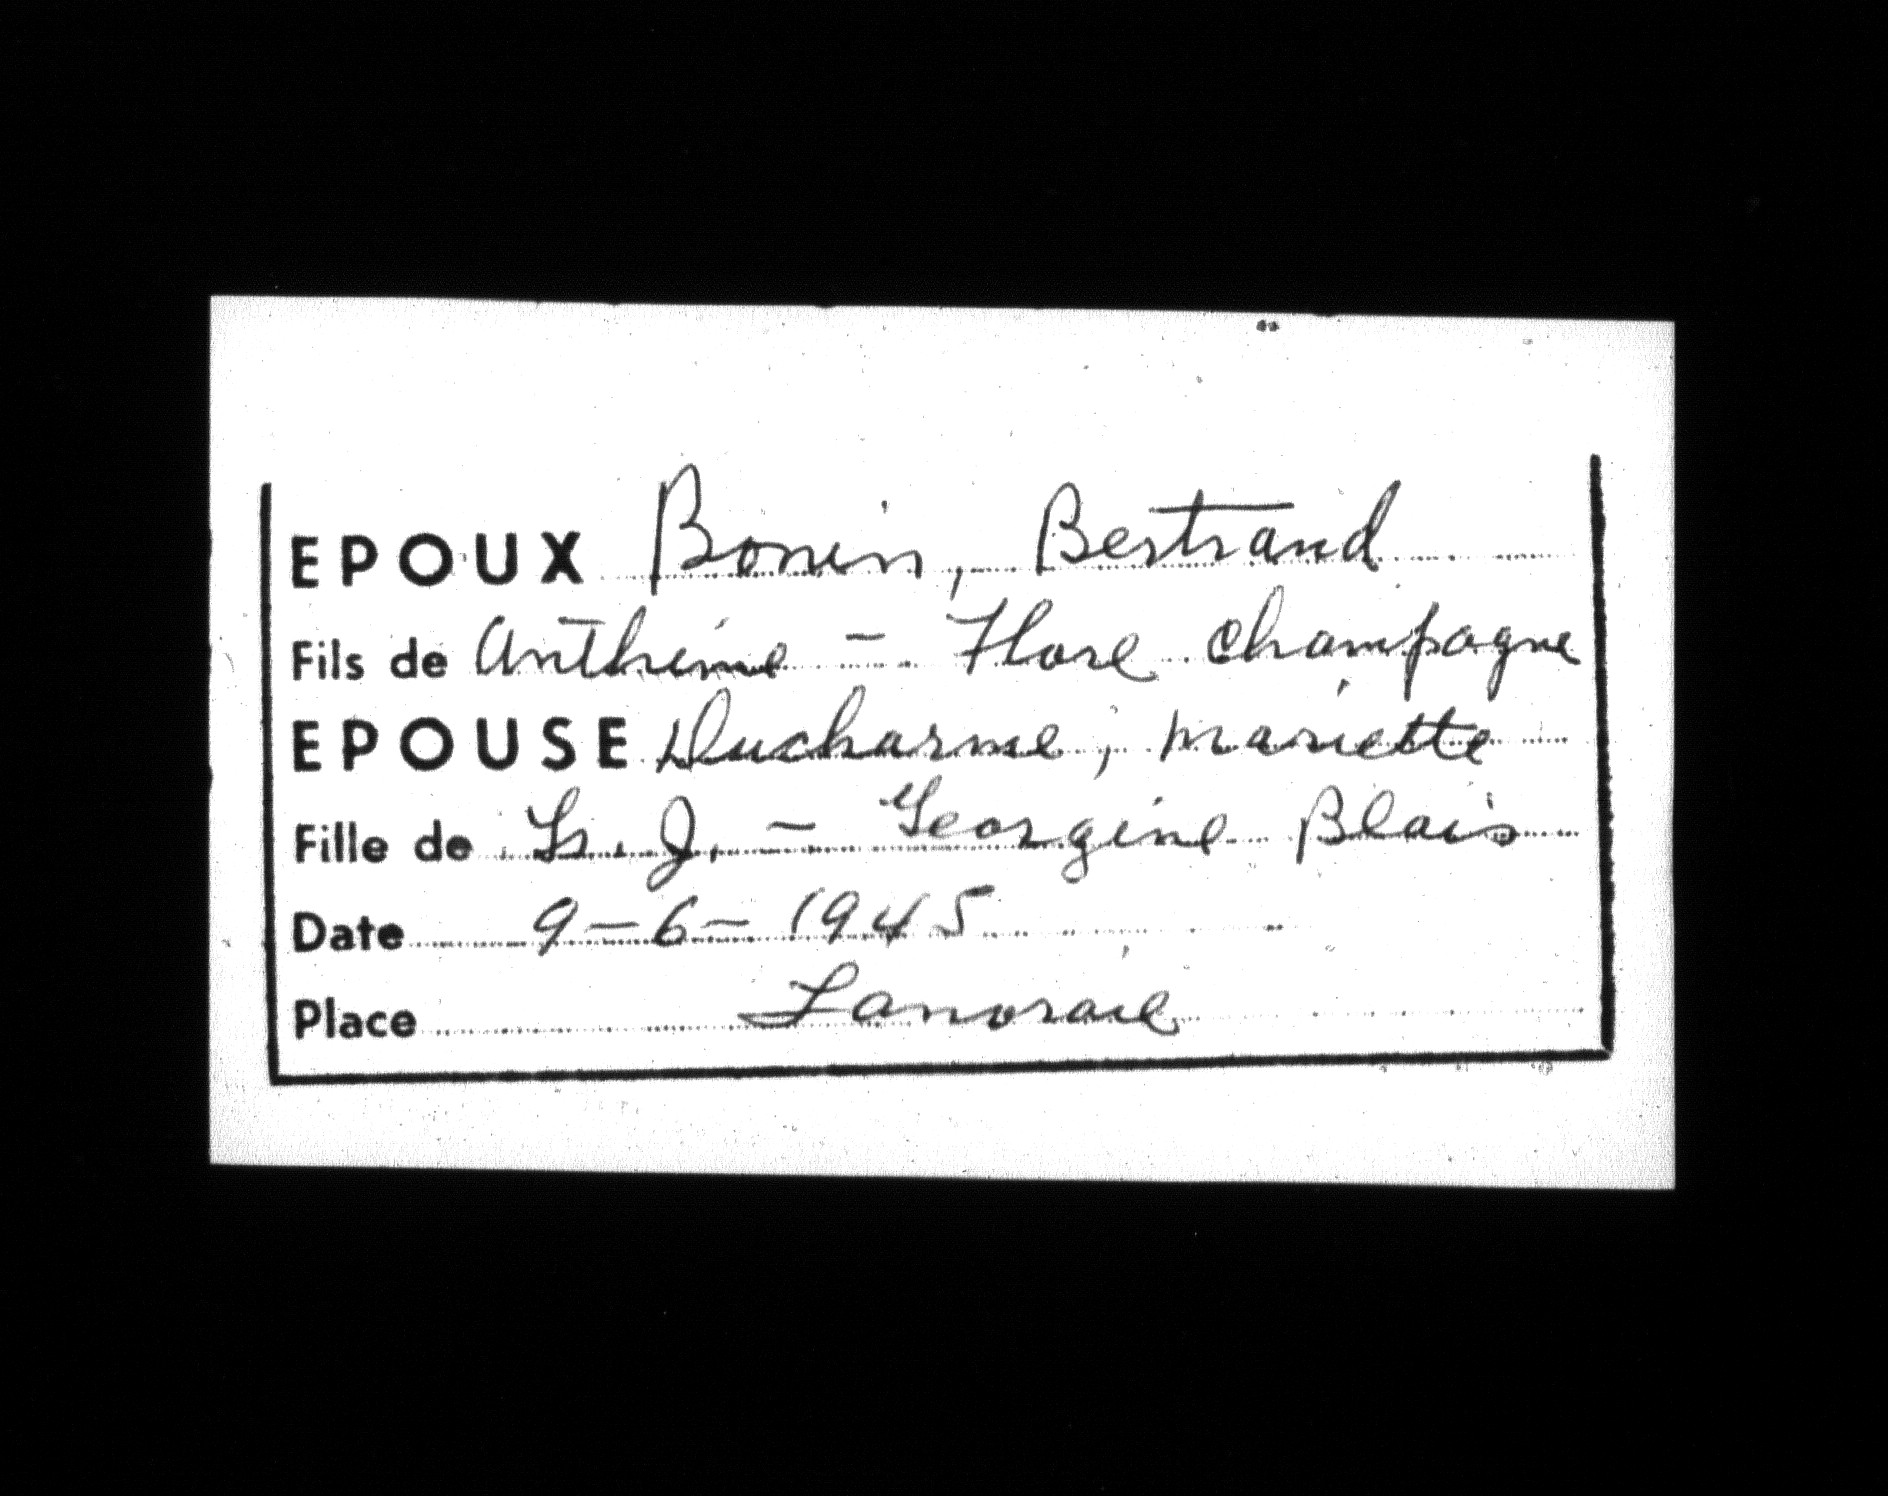 EPOUX Bonin, Bertrand
Fils de Anthime - Flore Champagne
EPOUSE Ducharme, Mariette
Fille de Ls. J. - Georgine Blais
Date 9-6-1945
Place Lanoraie